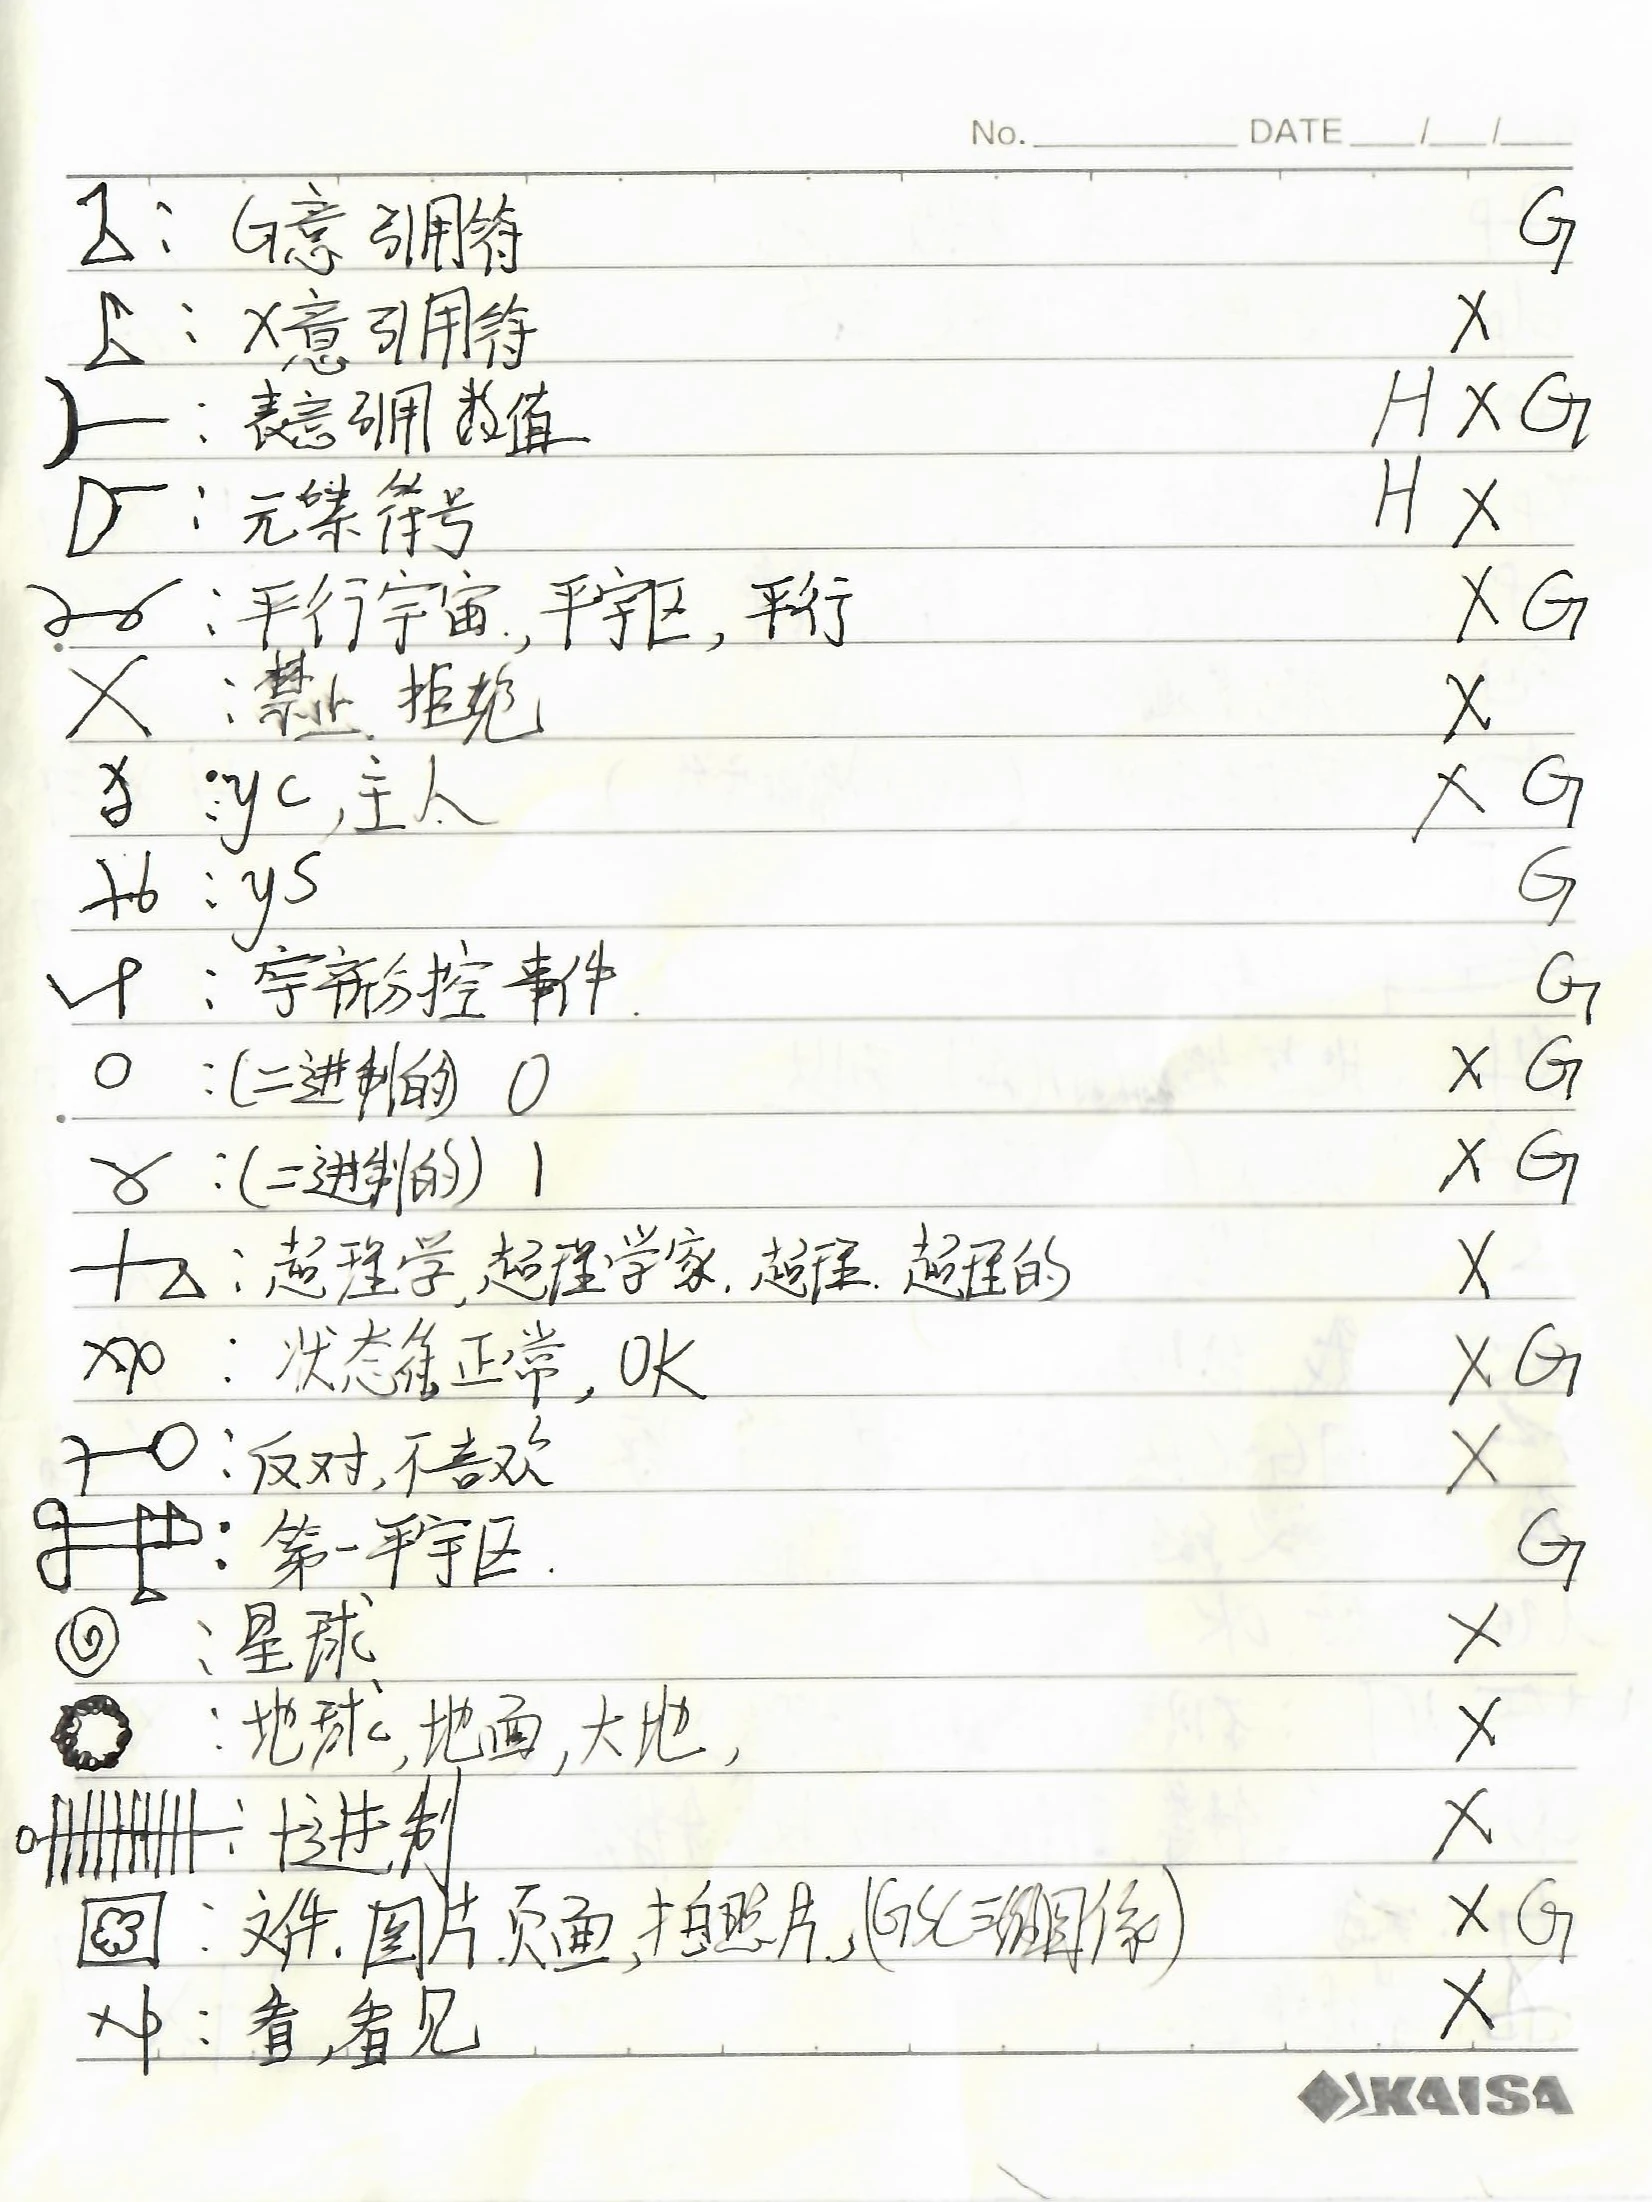 No. DATE / /
: G意引用符 G
: X意引用符 X
: 表意引用数值 H X G
: 元素符号 H X
: 平行宇宙., 平宇区, 平行 X G
X : 禁止. 拒绝 X
: yc, 主人 X G
: ys G
: 宇宙 分控事件. G
O : (二进制的) 0 X G
: (二进制的) 1 X G
: 超理学, 超理学家. 超理. 超理的 X
: 状态 正常, OK X G
: 反对, 不喜欢 X
: 第一平宇区. G
: 星球 X
: 地球, 地面, 大地, X
: 十进制 X
: 文件. 图片. 页面, 拍照片., (G 三维图像) X G
: 看, 看见 X
KAISA